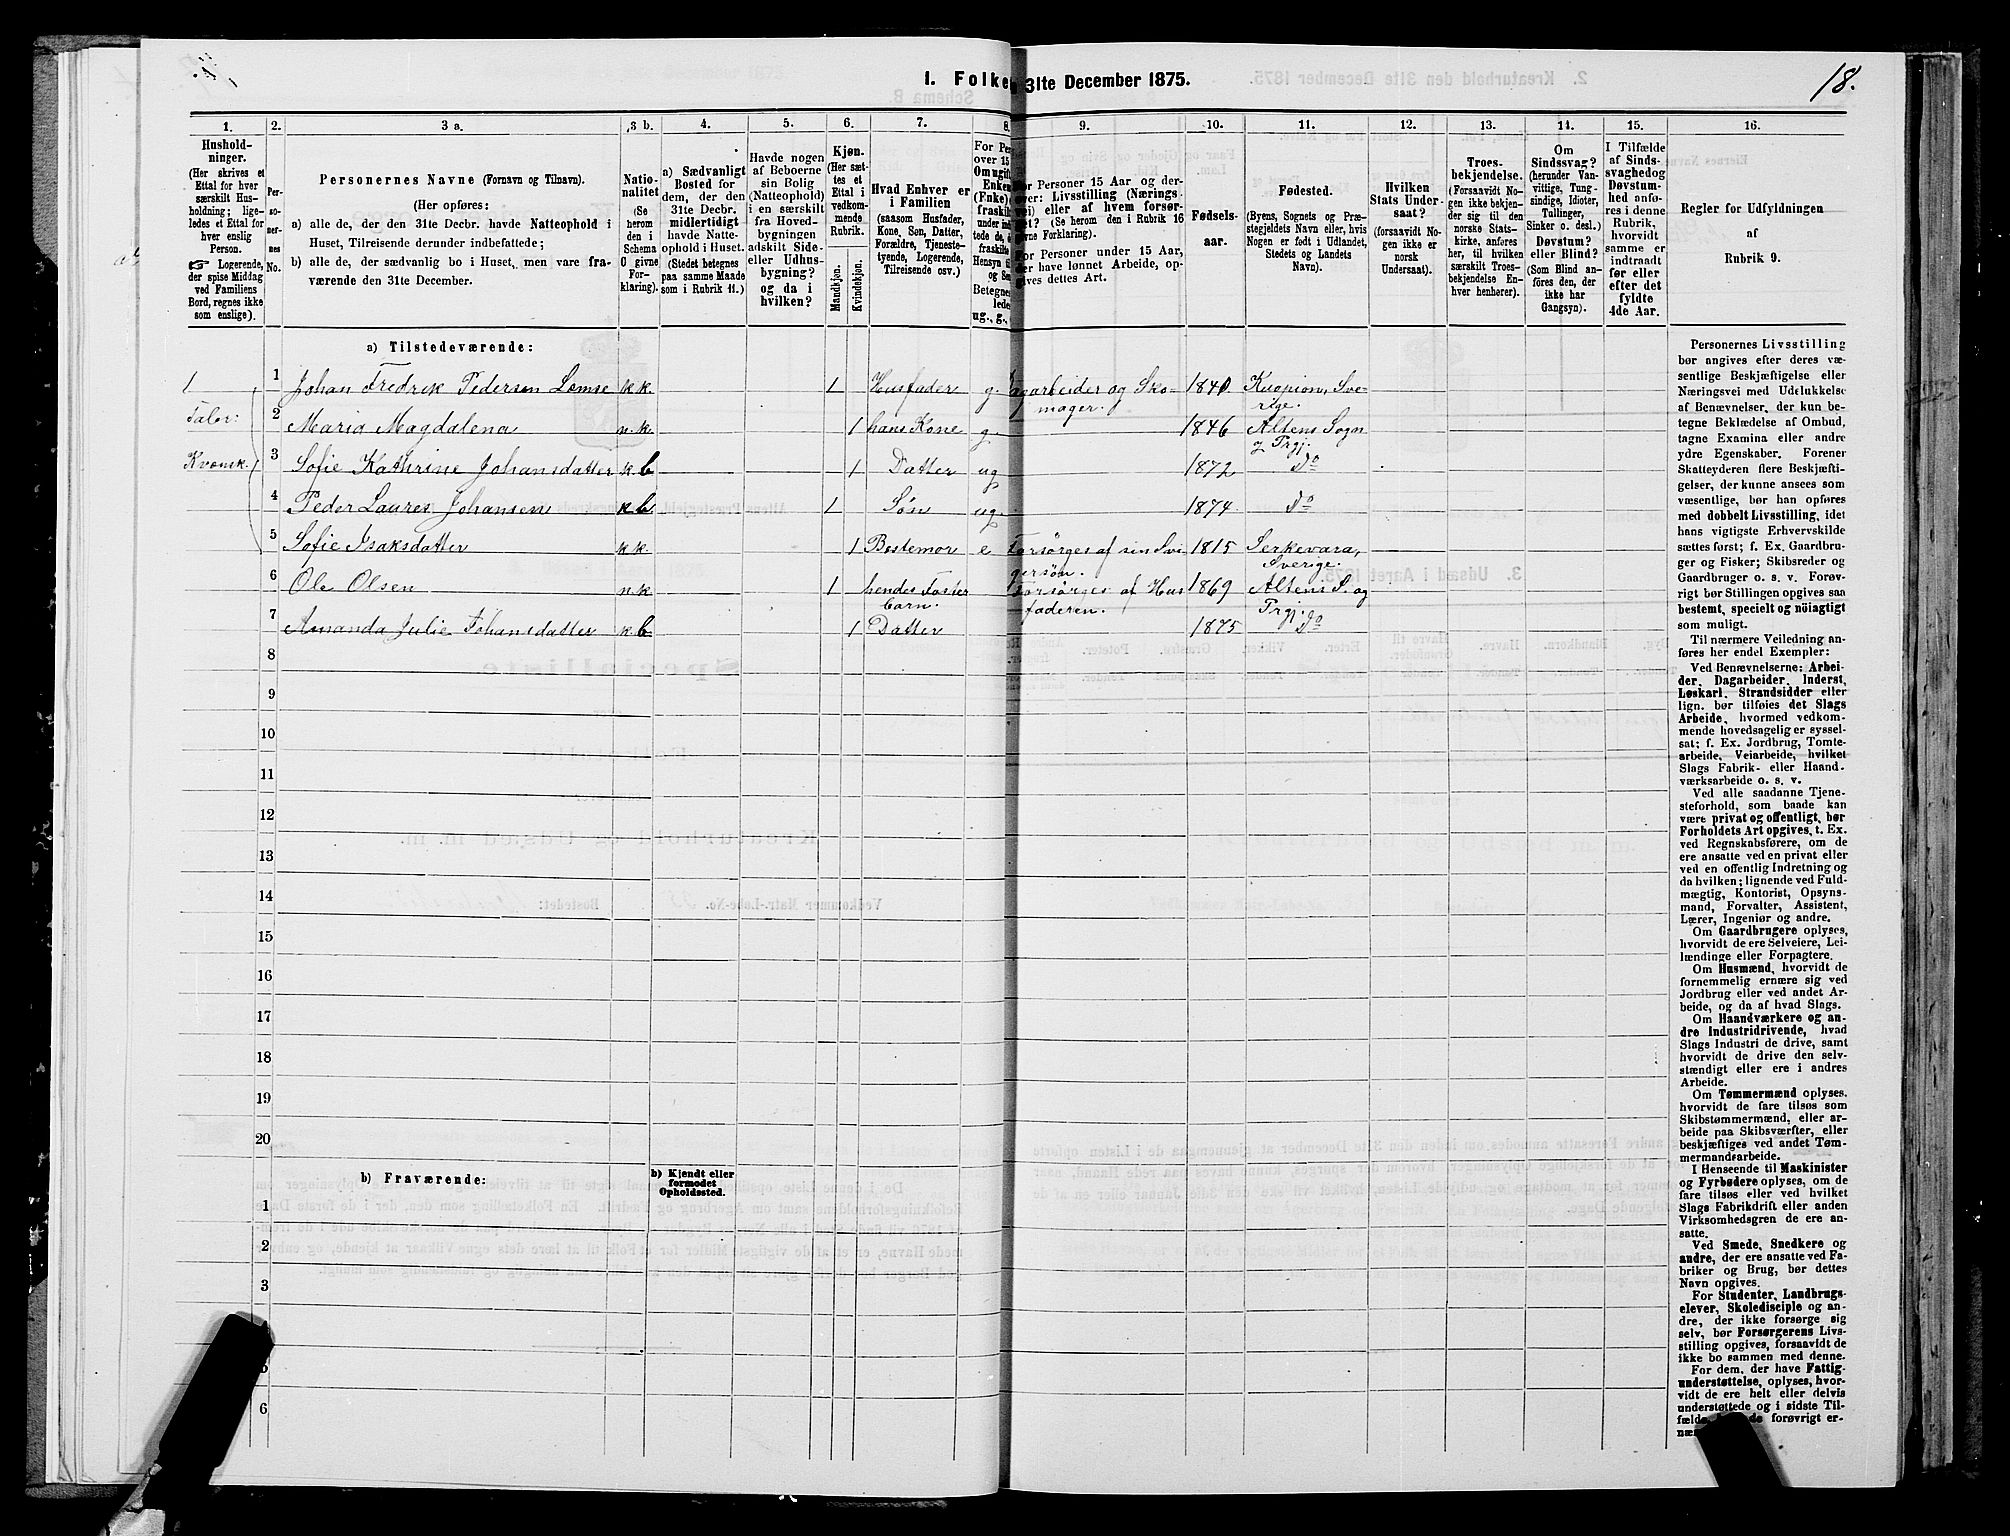 18.
1. Folke 31te December 1875.
1. 2. 3 a. 3 b. 4. 5. 6. 7. 8. 9. 10. 11. 12. 13. 14. 15. 16.
Hushold-
ninger.
(Her skrives et
Ettal for hver
særskilt Hus-
holdning; lige-
ledes et Ettal for
hver enslig
Person.
☞ Logerende,
der spise Middag
ved Familiens
Bord, regnes ikke
som enslige).
Per-
so-
ner-
nes
No.
Personernes Navne (Fornavn og Tilnavn).
(Her opføres:
a) alle de, der den 31te Decbr. havde Natteophold i
Huset, Tilreisende derunder indbefattede;
b) alle de, der sædvanlig bo i Huset, men vare fra-
værende den 31te December.
Natio-
nalitet
(Se
herom
den i
Schema
O givne
For-
klaring).
a) Sædvanligt
Bosted for
dem, der den
31te Decbr.
midlertidigt
havde Natte-
ophold i Huset.
(Stedet betegnes
paa samme Maade
som i Rubrik 11.)
Havde nogen
af Beboerne
sin Bolig
(Natteophold)
i en særskilt
fra Hoved-
bygningen
adskilt Side-
eller Udhus-
bygning?
og da i
hvilken?
Kjøn.
(Her sæt-
tes et
Ettal i
vedkom-
mende
Rubrik.
Mandkjøn.
Kvindekjøn.
Hvad Enhver er
i Familien
(saasom Husfader,
Kone, Søn, Datter,
Forældre, Tjeneste-
tyende, Logerende,
Tilreisende osv.)
For Pe
over 15
Om ugift
Enker
(Enke)
fraskil
under in
tede de,
fraskilte
Hensyn t
og Se
Betegne
lede
ug., g.,
or Personer 15 Aar og der-
over: Livsstilling (Nærings-
vei) eller af hvem forsør-
get? (Se herom den i Rubrik 16
givne Forklaring).
For Personer under 15 Aar,
der have lønnet Arbeide, op-
gives dettes Art.
Fødsels-
aar.
Fødested.
(Byens, Sognets og Præ-
stegjeldets Navn eller, hvis
Nogen er født i Udlandet,
Stedets og Landets
Navn).
Hvilken
Stats Under-
saat?
(forsaavidt No-
gen ikke er
norsk
Undersaat).
Troes-
bekjendelse.
(Forsaavidt No-
gen ikke bekjen-
der sig til den
norske Stats-
kirke, anføres
her, til hvilken
særskilt Troes-
bekjendelse En-
hver henhører).
Om
Sindssvag?
(herunder Van-
vittige, Tung-
sindige, Idioter,
Tullinger,
Sinker o. desl.)
Døvstum?
eller Blind?
(Som Blind an-
føres den, der
ikke har
Gangsyn).
I Tilfælde
af Sinds-
svaghed og
Døvstum-
hed anfø-
res i denne
Rubrik,
hvorvidt
samme er
indtraadt
før eller
efter det
fyldte
4de Aar.
Regler for Udfyldningen
af
Rubrik 9.
a) Tilstedeværende:
1 1 Johan Fredrik Pedersen Lomse k.k. 1 Husfader g. agarbeider og Sko- 1840 Kuopion, Sve-
mager. rige.
Taler: 2 Maria Magdalena n.k 1 hans Kone g. 1846 Altens Sogn
g Prgj.
Kvænsk. 3 Sofie Kathrine Johansdatter k.b 1 Datter ug 1872 do
4 Peder Laures. Johansen k.b 1 Søn ug. 1874 do
5 Sofie Isaksdatter k.k. 1 Bestemor e Forsørges af sin Svi 1815 Jerkevara,
gersøn. Sverige.
6 Ole Olsen n.k 1 hendes Foster Forsørges af Hus 1869 Altens S. og
barn. faderen. Prgj.
7 Amanda Julie Johansdatter k.b 1 Datter 1875 do
8
9
10
11
12
13
14
15
16
17
18
19
20
b) Fraværende: b) Kjendt eller
formodet
Opholdssted.
1
2
3
5
6
Personernes Livsstilling
bør angives efter deres væ-
sentlige Beskjæftigelse eller
Næringsvei med Udelukkelse
af Benævnelser, der kun be-
tegne Beklædelse af Ombud,
tagne Examina eller andre
ydre Egenskaber. Forener
Skatteyderen flere Beskjæfti-
gelser, der kunne ansees som
væsentlige, bør han opføres
med dobbelt Livsstilling, idet
hans vigtigste Erhvervskilde
sættes først; f. Ex. Gaardbru-
ger og Fisker; Skibsreder og
Gaardbruger o. s. v. Forøv-
rigt bør Stillingen opgives saa
bestemt, specielt og nøiagtigt
som muligt.
Til nærmere Veiledning an-
føres her endel Exempler:
Ved Benævnelserne: Arbei-
der, Dagarbeider, Inderst,
Løskarl, Strandsidder eller
lign. bør tilføies det Slags
Arbeide, hvormed vedkom-
mende hovedsagelig er syssel-
sat; f. Ex. Jordbrug, Tomte-
arbeide, Veiarbeide, hvilket
Slags Fabrik- eller Haand-
værksarbeide o. s. v.
Ved alle saadanne Tjene-
steforhold, som baade kan
være privat og offentligt, bør
Forholdets Art opgives, t. Ex.
ved Regnskabsførere, om de
ere ansatte ved en privat eller
ved en offentlig Indretning og
da hvilken; lignende ved Fuld-
mægtig, Kontorist, Opsyns-
mand, Forvalter, Assistent,
Lærer, Ingeniør og andre.
Om Gaardbrugere oplyses,
hvorvidt de ere Selveiere, Lei-
lændinge eller Forpagtere.
Om Husmænd, hvorvidt de
fornemmelig ernære sig ved
Jordbrug eller ved andet Ar-
beide, og da af hvad Slags.
Om Haandværkere og an-
dre Industridrivende, hvad
Slags Industri de drive, samt
hvorvidt de drive den selv-
stændigt eller ere i andres
Arbeide.
Om Tømmermænd oplyses,
hvorvidt de fare tilsøs som
Skibstømmermænd, eller ar-
beide paa Skibsværfter, eller
beskjæftiges ved andet Tøm-
mermandsarbeide.
I Henseende til Maskinister
og Fyrbødere oplyses, om de
fare tilsøs eller ved hvilket
Slags Fabrikdrift eller anden
Virksomhedsgren de ere an-
satte.
Ved Smede, Snedkere og
andre, der ere ansatte ved Fa-
briker og Brug, bør dettes
Navn opgives.
For Studenter, Landbrugs-
elever, Skoledisciple og an-
dre, der ikke forsørge sig
selv, bør Forsørgerens Livs-
stilling opgives, forsaavidt de
ikke bo sammen med denne.
For dem, der have Fattig-
understøttelse, oplyses, hvor-
vidt de ere helt eller delvis
understøttede og i sidste Til-
fælde, forøvrigt er-